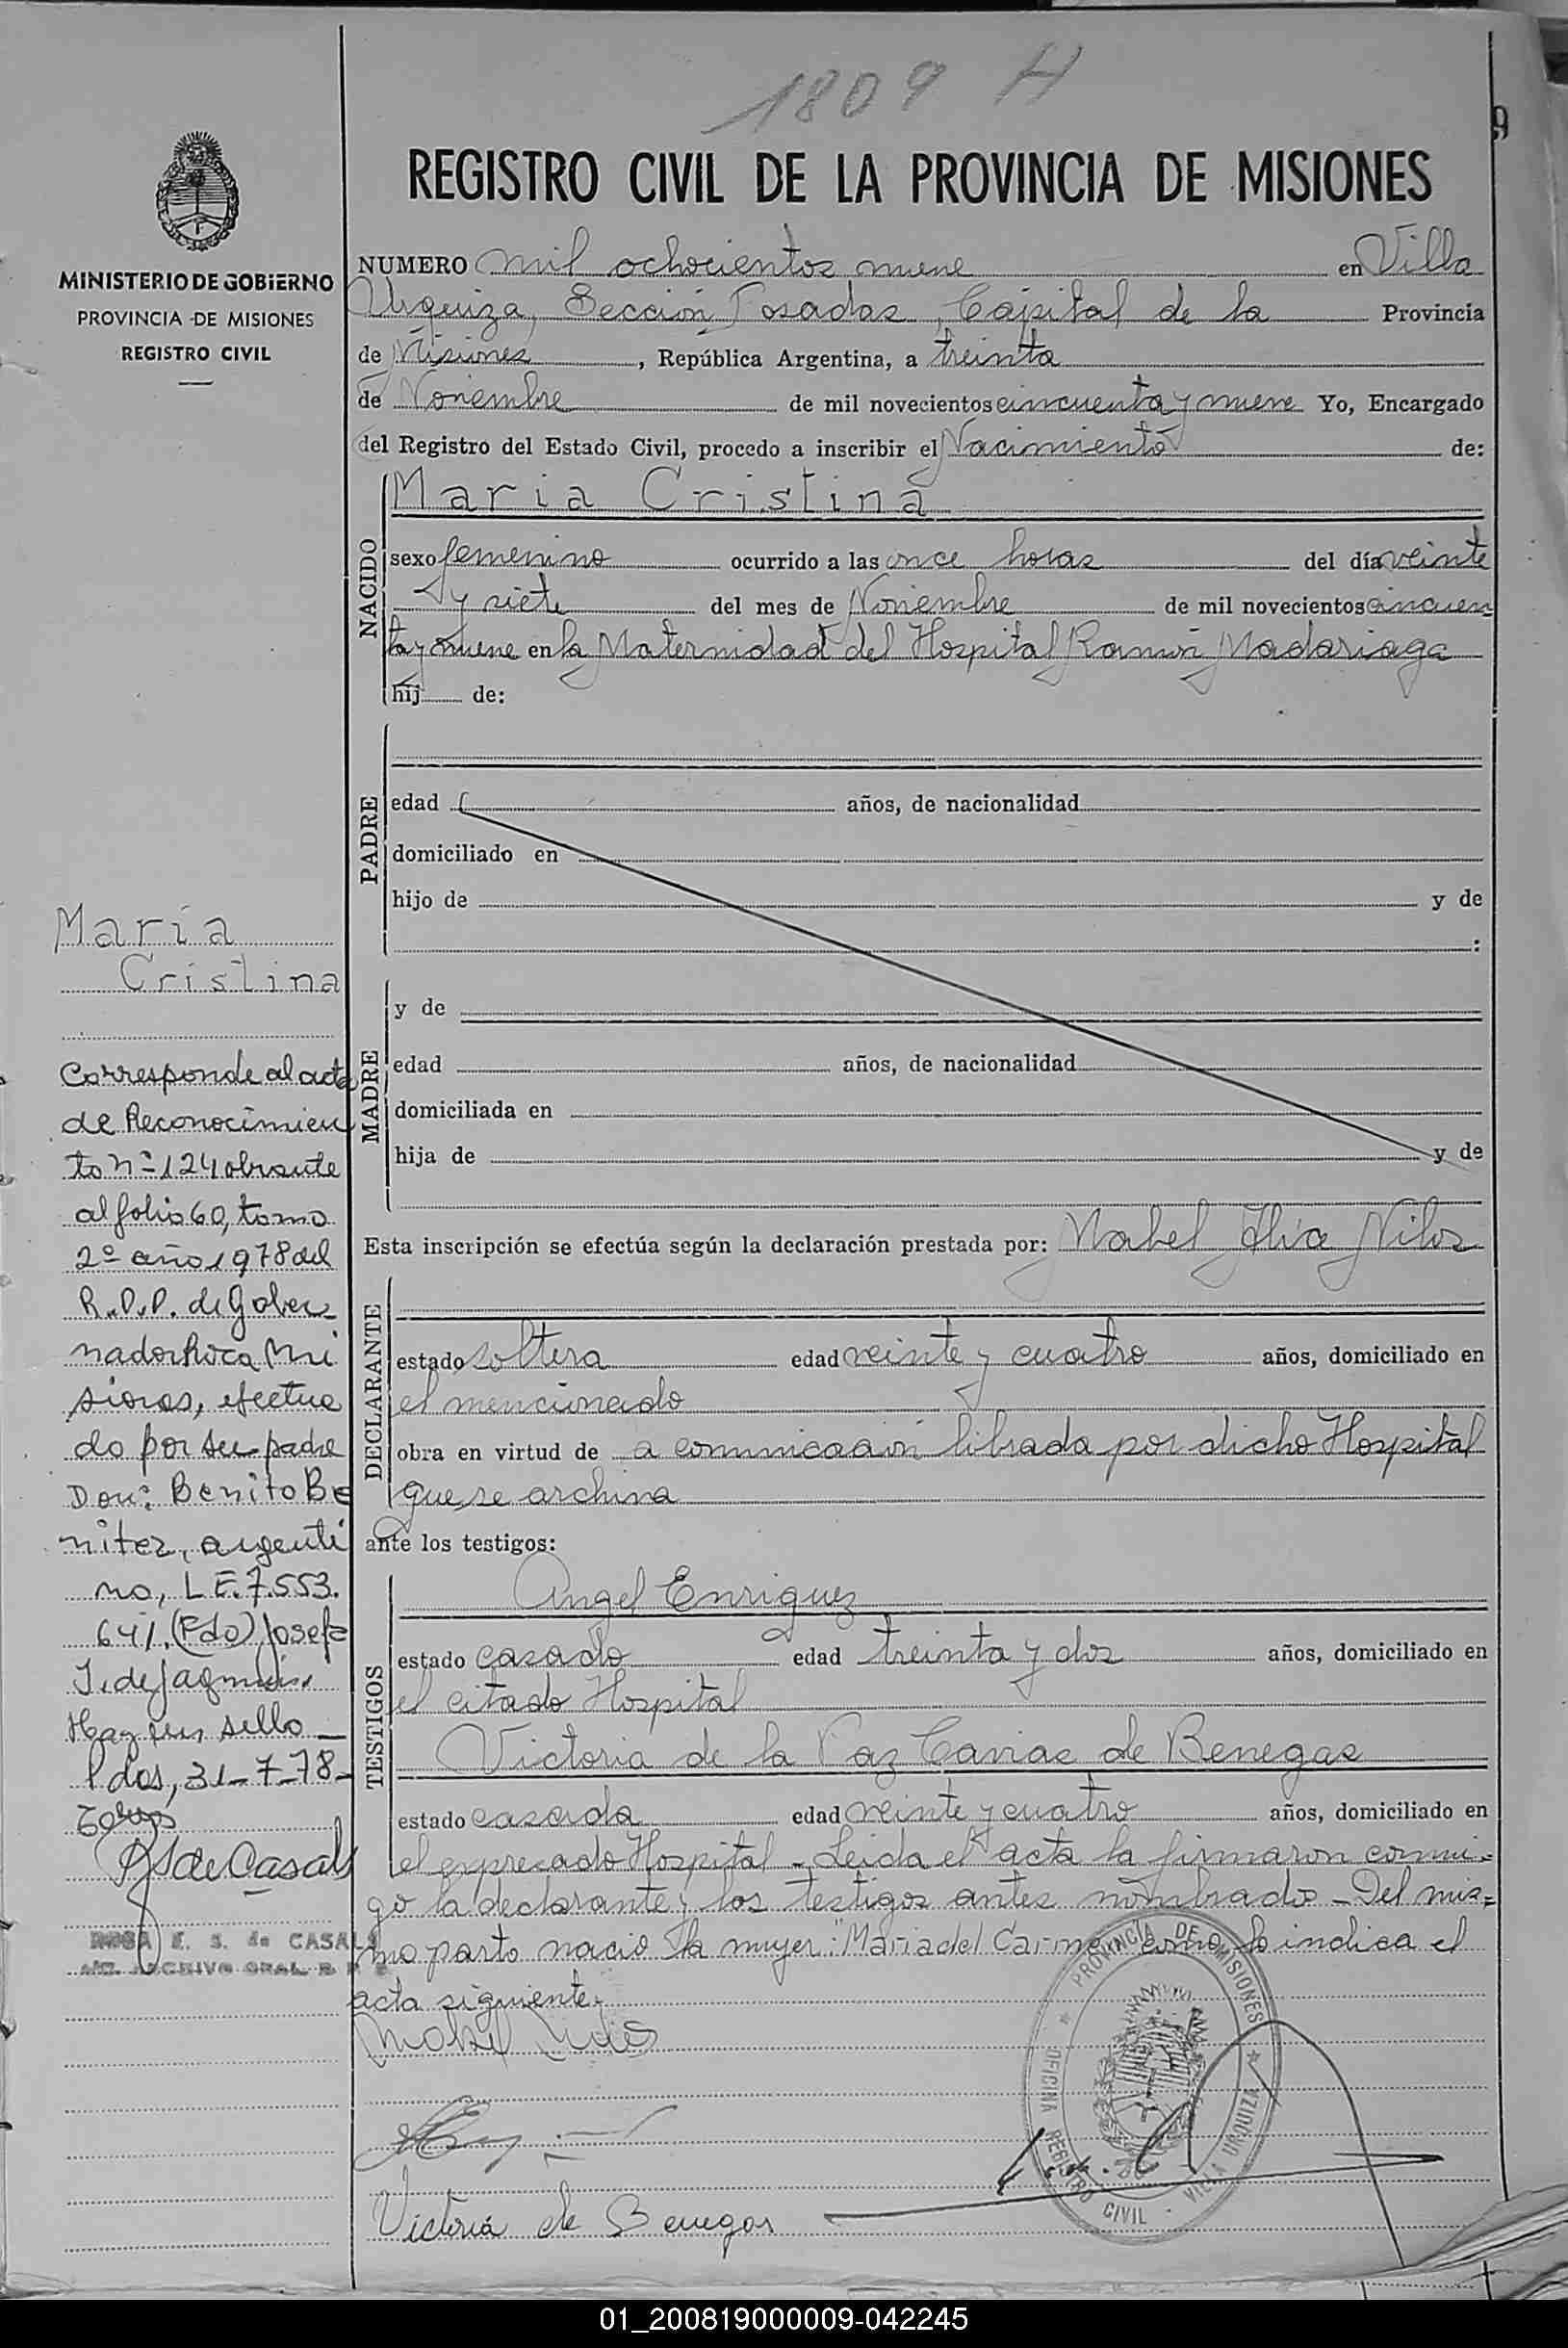 1809 H
9
REGISTRO CIVIL DE LA PROVINCIA DE MISIONES
MINISTERIO DE GOBIERNO
PROVINCIA DE MISIONES
REGISTRO CIVIL
NUMERO mil ochocientos nueve en Villa
Urquiza, Sección Posadas, Capital de la Provincia
de Misiones, República Argentina, a treinta
de Noviembre de mil novecientos cincuenta y nueve Yo, Encargado
del Registro del Estado Civil, procedo a inscribir el Nacimiento de:
NACIDO
Maria Cristina
sexo femenino ocurrido a las once horas del día veinte
y siete del mes de Noviembre de mil novecientos cincuen
ta y nueve en la Maternidad del Hospital Ramón Madariaga
hij de:
PADRE
edad años, de nacionalidad
domiciliado en
hijo de y de
:
MADRE
y de
edad años, de nacionalidad
domiciliada en
hija de y de
Esta inscripción se efectúa según la declaración prestada por: Mabel Nilos
DECLARANTE
estado soltera edad veinte y cuatro años, domiciliado en
el mencionado
obra en virtud de a comunicación librada por dicho Hospital
que se archiva
ante los testigos:
TESTIGOS
Angel Enriquez
estado casado edad treinta y dos años, domiciliado en
el citado Hospital
Victoria de la Paz Carias de Benegas
estado casada edad veinte y cuatro años, domiciliado en
el expresado Hospital - Leida el acta la firmaron conmi=
go la declarante y los testigos antes nombrados - Del mis=
mo parto nació la mujer: "Maria del Carmen" como lo indica el
acta siguiente.
Victoria de Benegas
PROVINCIA DE MISIONES
OFICINA REGISTRO CIVIL - VILLA URQUIZA
María
Cristina
Corresponde al acta
de Reconocimien
to nº 124 obrante
al folio 60, tomo
2º año 1978 del
R.P.P. de Gober
nador Roca Mi
siones, efectua
do por su padre
Don: Benito Be
nitez, argenti
no, L.E. 7.553.
641. (Fdo) Josefa
I. de
Hay un sello
Pdas, 31-7-78-
RS de Casals
ROSA E. S. de CASALS
ARCHIVO GRAL. R P
01_200819000009-042245